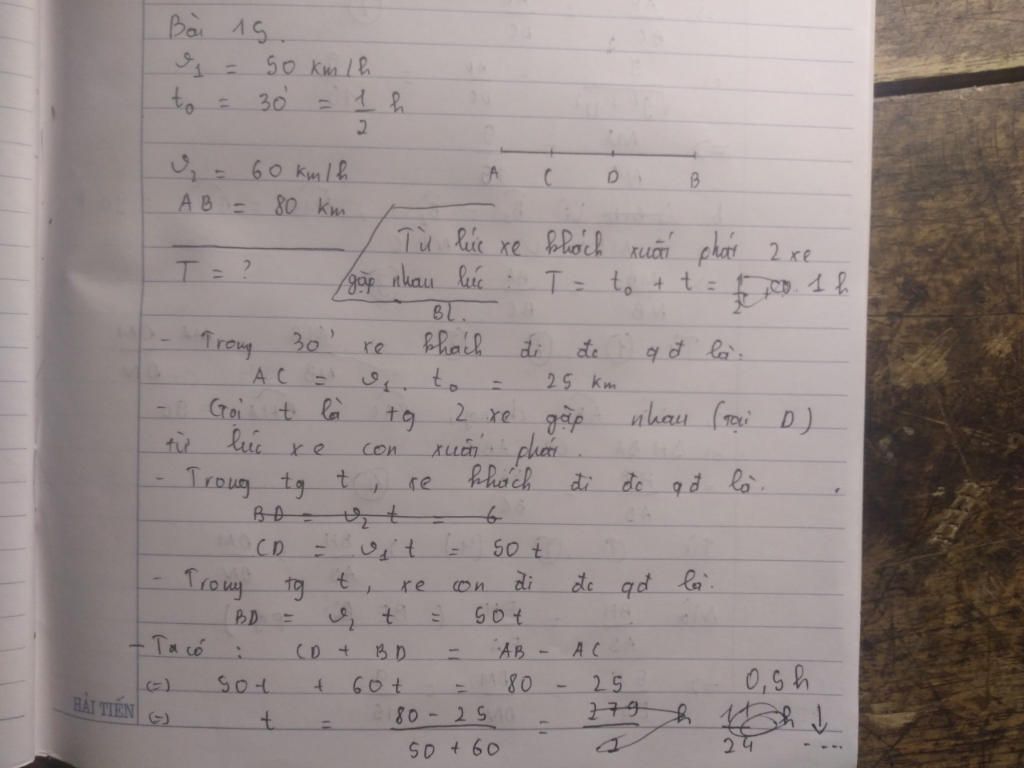 Bài 15.
v₁ = 50 km/h
t₀ = 30' = 1/2 h
v₂ = 60 km/h
A C D B
AB = 80 km
T = ?
Từ lúc xe khách xuất phát 2 xe
gặp nhau lúc : T = t₀ + t = 1h
Bl.
- Trong 30' xe khách đi đc qđ là:
AC = v₁. t₀ = 25 km
- Gọi t là tg 2 xe gặp nhau (tại D)
từ lúc xe con xuất phát.
- Trong tg t, xe khách đi đc qđ là:
BD = v₂ t = 6
CD = v₁ t = 50 t
- Trong tg t, xe con đi đc qđ là:
BD = v₂ t = 50t
- Ta có : CD + BD = AB - AC
(=) 50t + 60t = 80 - 25 0,5h
(=) t = 80 - 25 / 50 + 60 = h 24 ....
HẢI TIẾN